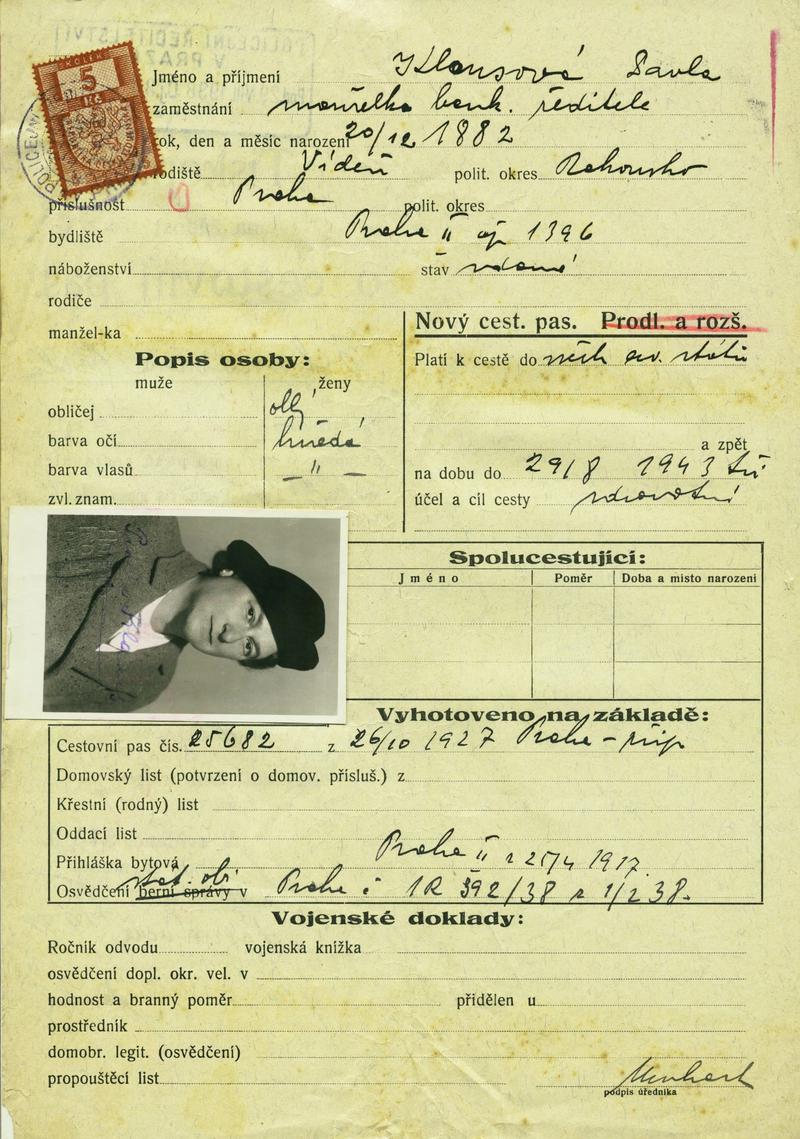 KOLEK
5
Kč
Jméno a příjmení Klausová Pavla
zaměstnání manželka bank. ředitele
rok, den a měsíc narození 20/12 1882
rodiště Vídeň polit. okres Rakousko
příslušnost Praha polit. okres
bydliště Praha II čp 1396
náboženství stav vdaná
rodiče
manžel-ka
Popis osoby:
muže ženy
obličej
barva očí hnědá
barva vlasů — " —
zvl. znam.
Nový cest. pas. Prodl. a rozš.
Platí k cestě do všech ev. států
a zpět
na dobu do 29/8 1943
účel a cíl cesty zdravotní
Spolucestující:
Jméno Poměr Doba a místo narození
Vyhotoveno na základě:
Cestovní pas čís. 25682 z 26/10 1927 Praha -
Domovský list (potvrzení o domov. přísluš.) z
Křestní (rodný) list
Oddací list
Přihláška bytová Praha II z 25/4 1917.
Osvědčení stát. obč. berní správy v Praha 1R 392/38 z 1/2 38.
Vojenské doklady:
Ročník odvodu vojenská knížka
osvědčení dopl. okr. vel. v
hodnost a branný poměr přidělen u
prostředník
domobr. legit. (osvědčení)
propouštěcí list
podpis úředníka